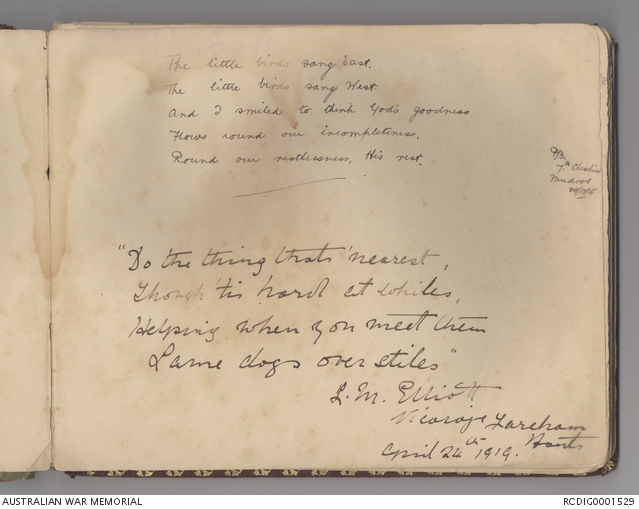 The little birds sang East.
The little birds sang West.
And I smiled to think God's goodness
Flows round our incompleteness,
Round our restlessness, His rest.
7th Cheshire
Mudros
"Do the thing that's nearest,
Though 'tis hard at whiles,
Helping when you meet them
Lame dogs over stiles"
L. M. Elliott
Vicarage Fareham
Hants
April 24th 1919.
AUSTRALIAN WAR MEMORIAL
RCDIG0001529